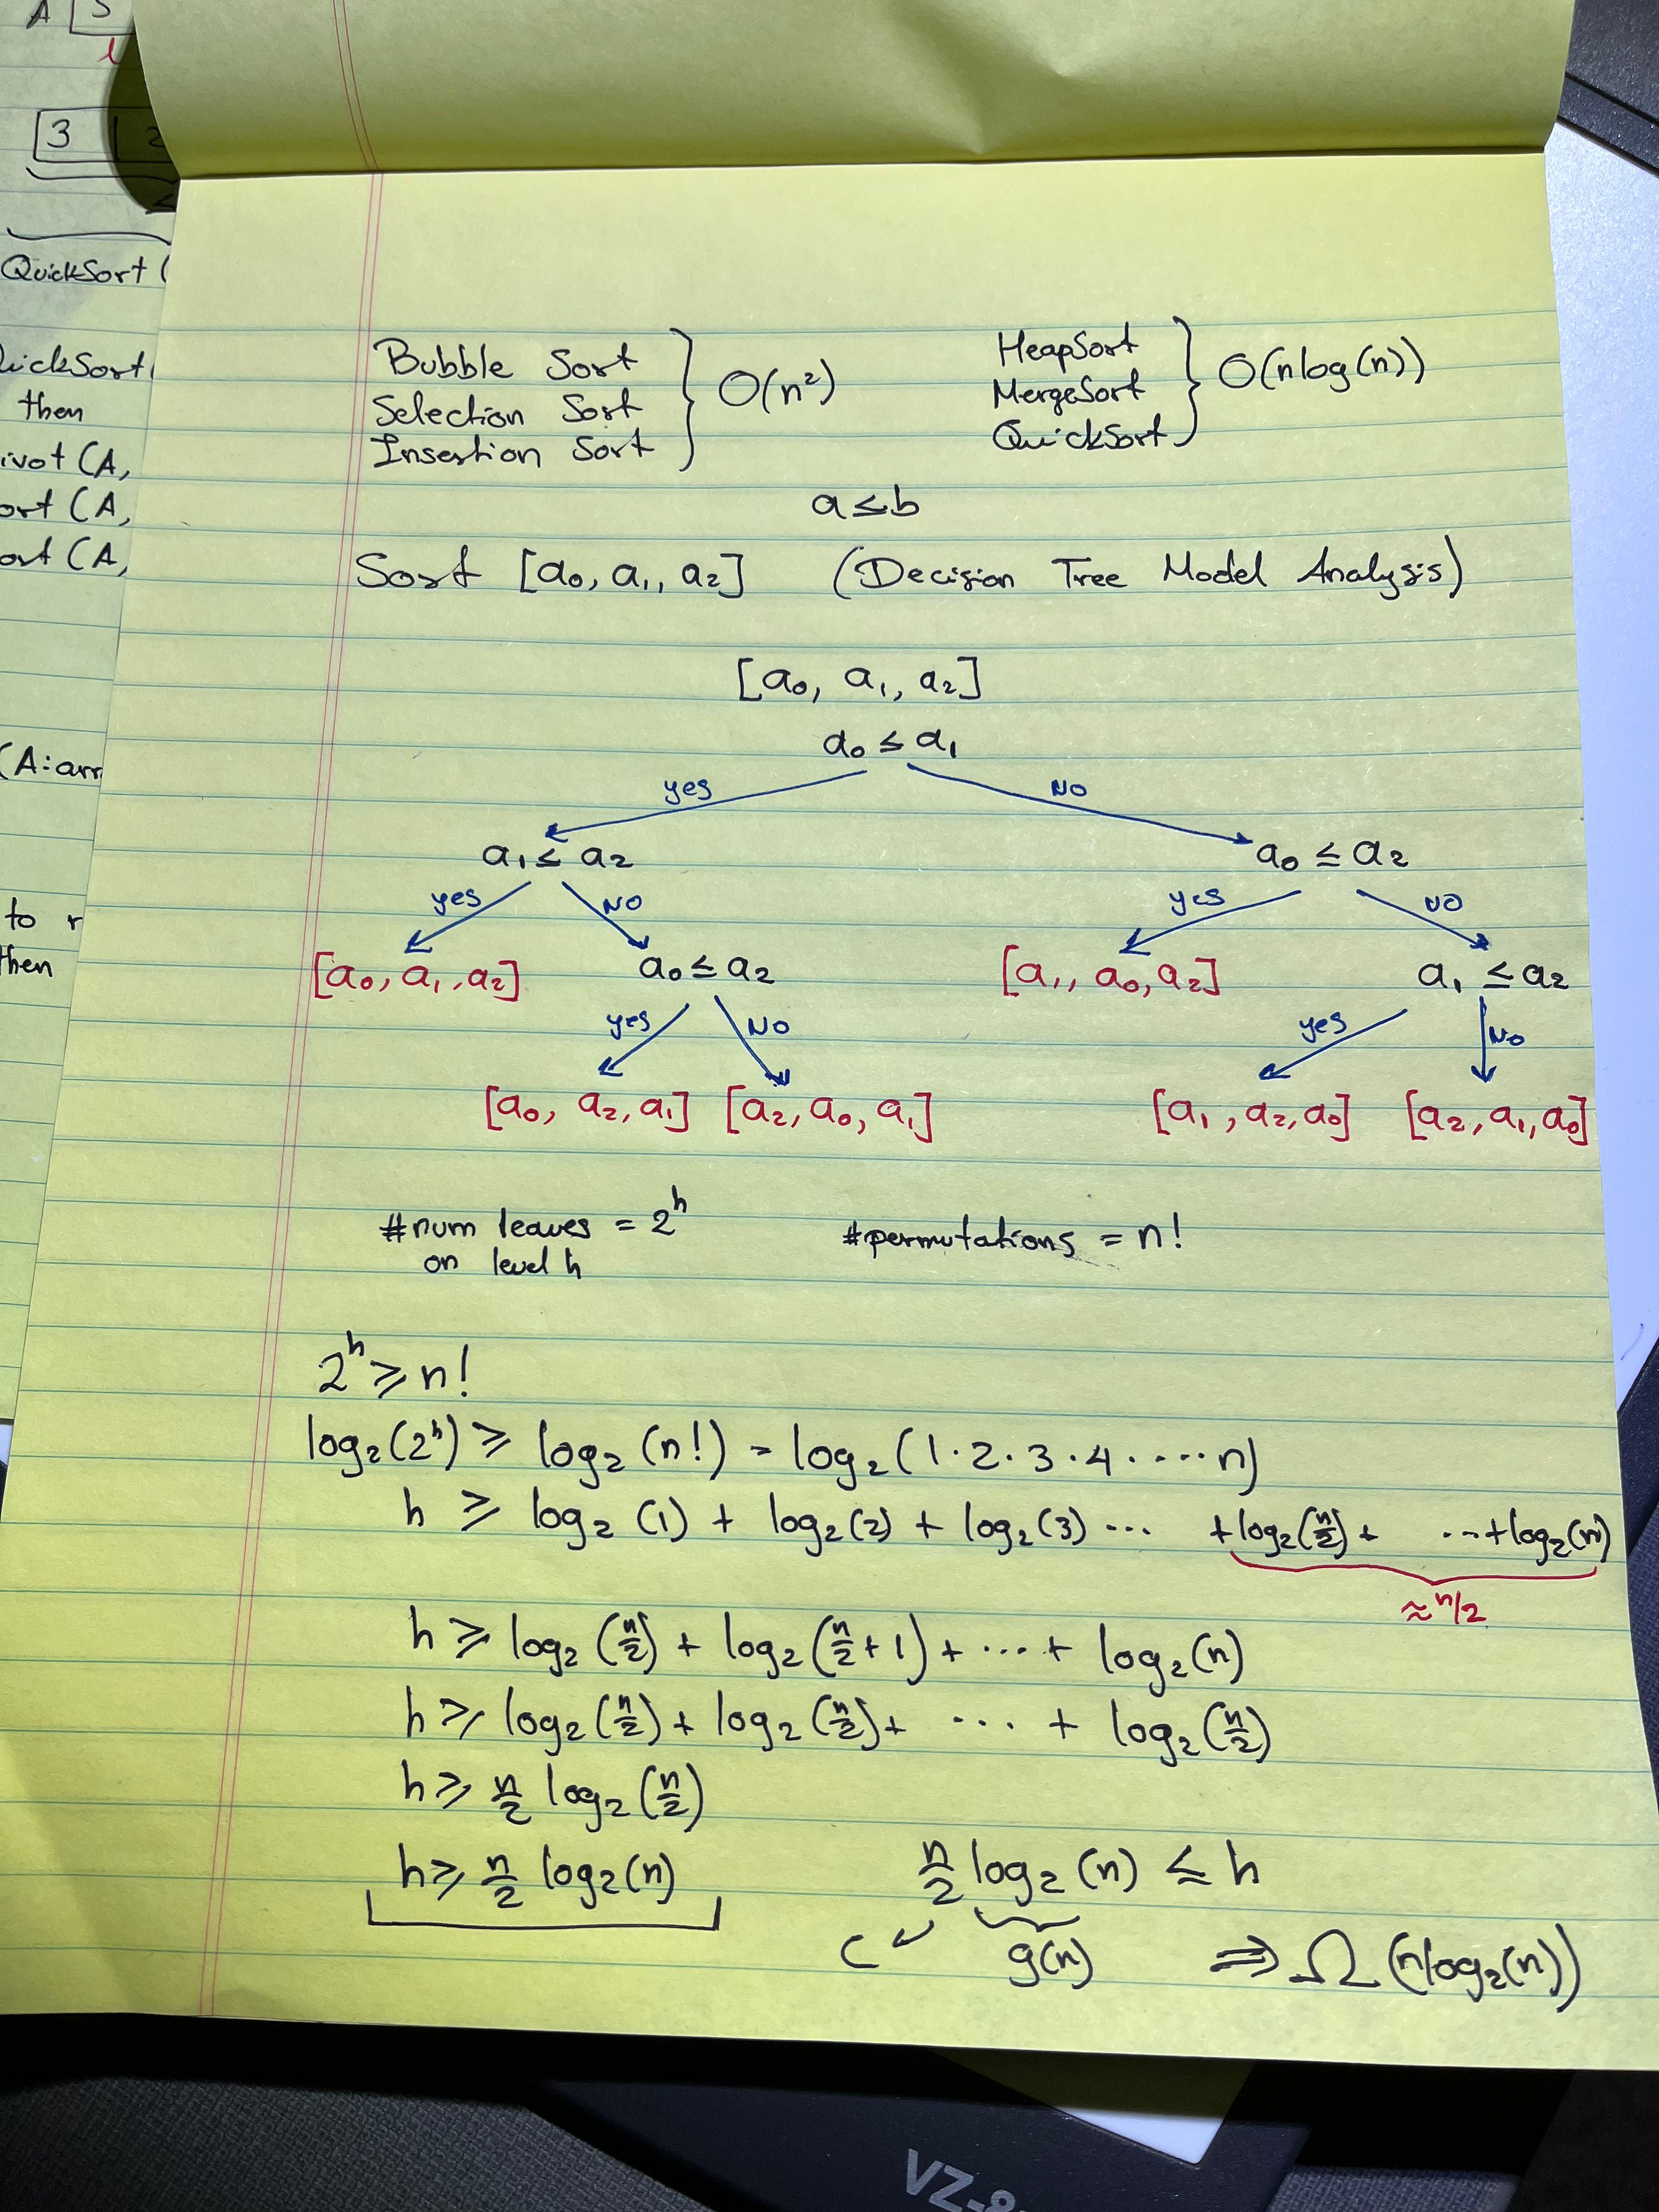 A 5
l
3 2
QuickSort (
uickSort(
then
ivot (A,
ort (A,
ort (A,
(A:arr
to r
then
Bubble Sort
Selection Sort
Insertion Sort
O(n²)
HeapSort
MergeSort
QuickSort
O(nlog(n))
a≤b
Sort [a₀, a₁, a₂] (Decision Tree Model Analysis)
[a₀, a₁, a₂]
a₀ ≤ a₁
yes NO
a₁ ≤ a₂ a₀ ≤ a₂
yes NO yes NO
[a₀, a₁, a₂] a₀ ≤ a₂ [a₁, a₀, a₂] a₁ ≤ a₂
yes NO yes NO
[a₀, a₂, a₁] [a₂, a₀, a₁] [a₁, a₂, a₀] [a₂, a₁, a₀]
#num leaves = 2^h #permutations = n!
on level h
2^h ≥ n!
log₂(2^h) ≥ log₂(n!) = log₂(1·2·3·4·····n)
h ≥ log₂(1) + log₂(2) + log₂(3) ... + log₂(n/2) + ... + log₂(n)
≈ n/2
h ≥ log₂(n/2) + log₂(n/2 + 1) + ... + log₂(n)
h ≥ log₂(n/2) + log₂(n/2) + ... + log₂(n/2)
h ≥ n/2 log₂(n/2)
h ≥ n/2 log₂(n) n/2 log₂(n) ≤ h
c g(n) ⇒ Ω(nlog₂(n))